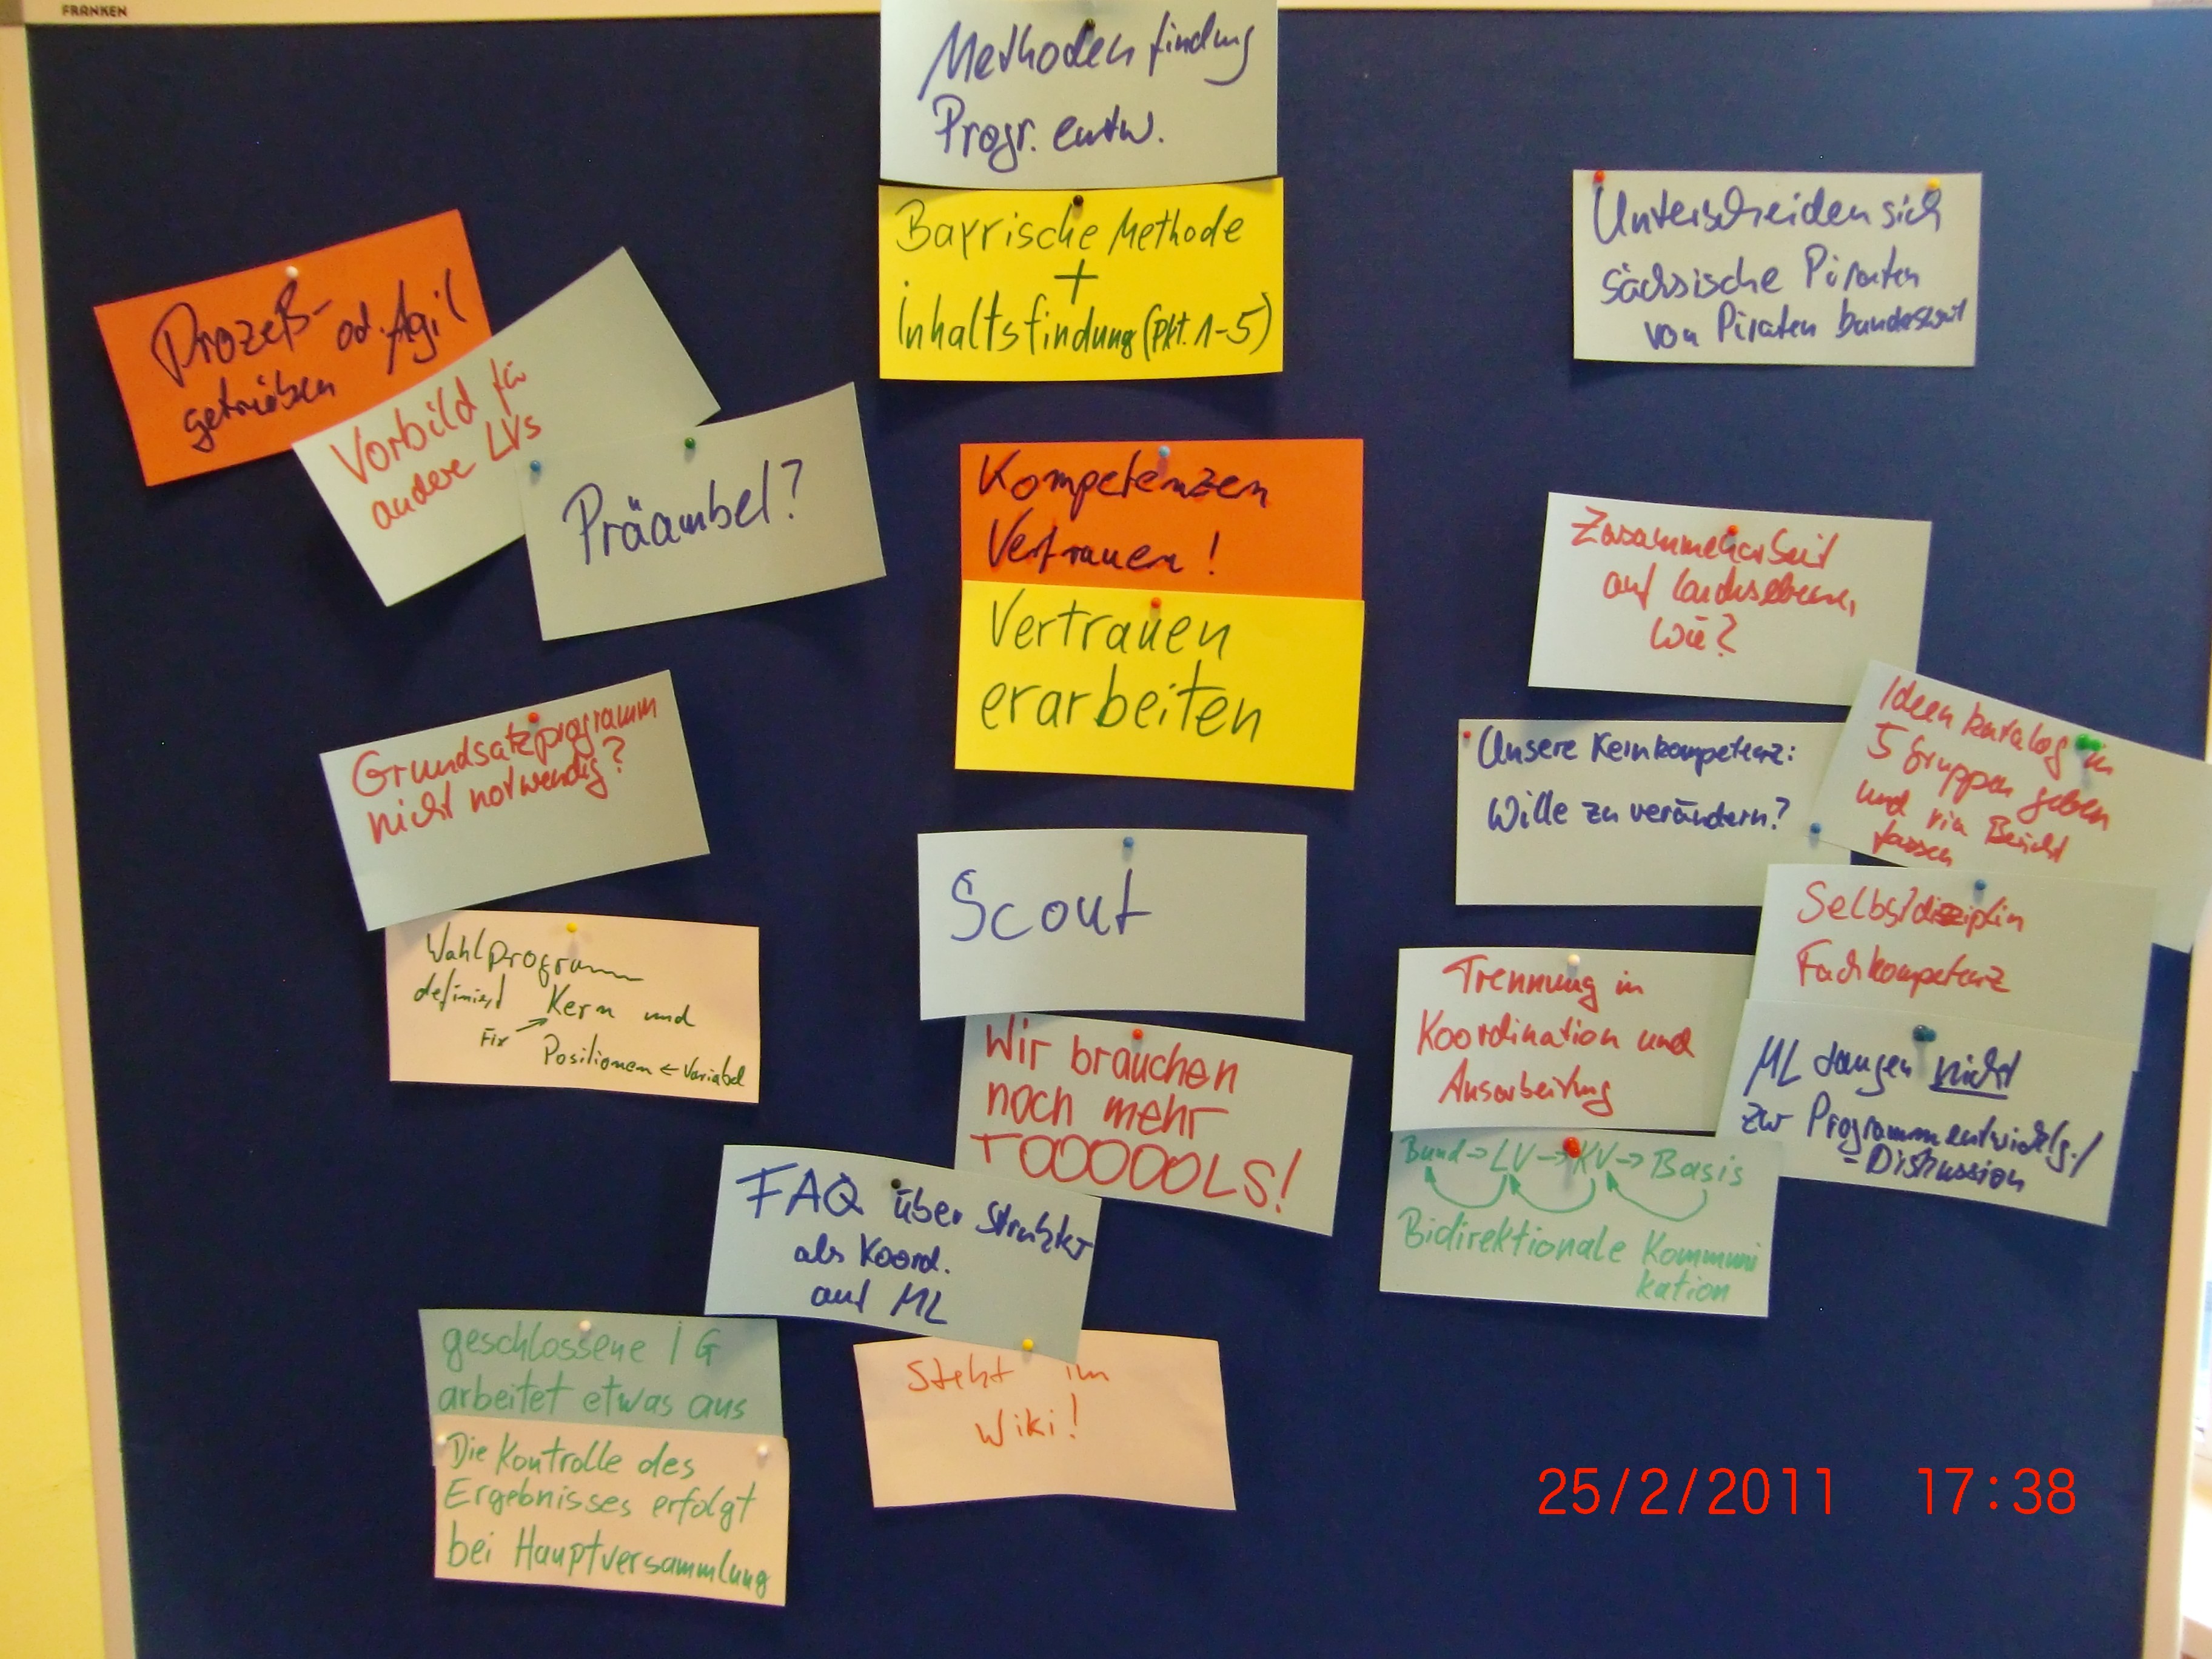 FRANKEN
Methodenfindung
Progr. entw.
Bayrische Methode
+
Inhaltsfindung (Pkt. 1-5)
Unterscheiden sich
sächsische Piraten
von Piraten bundesweit
Prozeß- od. Agil
getrieben
Vorbild für
andere LVs
Präambel?
Kompetenzen
Vertrauen!
Vertrauen
erarbeiten
Zusammenarbeit
auf Landesebene,
wie?
Grundsatzprogramm
nicht notwendig?
Wahlprogramm
definiert Kern und
Fix
Positionen ← Variabel
Scout
Wir brauchen
noch mehr
TOOOOOLS!
FAQ über Struktur
als Koord.
auf ML
steht im
Wiki!
geschlossene IG
arbeitet etwas aus
Die Kontrolle des
Ergebnisses erfolgt
bei Hauptversammlung
Unsere Kernkompetenz:
Wille zu verändern?
Ideenkatalog in
5 Gruppen geben
und via Bericht
fassen
Selbstdisziplin
Fachkompetenz
Trennung in
Koordination und
Ausarbeitung
ML taugen nicht
zur Programmentwicklg./
-Diskussion
Bund → LV → KV → Basis
Bidirektionale Kommuni
kation
25/2/2011 17:38